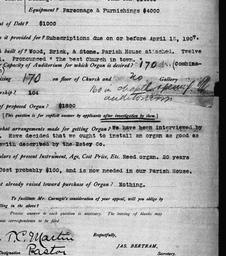 Equipment? Parsonage & Furnishings $4000
nt of Debt? $1000
is it provided for? "Subscriptions due on or before April 15, 190
built of? Wood, Brick, & Stone. Parish House attached. Twelve
Pronounced "The best Church in town."
Capacity of Auditorium for which Organ is desired? 170
170 on floor of Church and no Gallery
bership? 104
of proposed Organ? $1800
[This question is for explicit answer by applicants after investigation by them.]
what arrangements made for getting Organ? We have been interviewed by
have decided that we ought to install an organ as good as
with described by the Estey Co.
culars of present Instrument, Age, Cost Price, Etc. Reed organ. 20 years
Cost probably $100, and is now needed in our Parish House.
nt already raised toward purchase of Organ? Nothing.
To facilitate Mr. Carnegie's consideration of your appeal, will you oblige by
filling in the above?
Precise answer to each question is necessary. The leaving of blanks may
Respectfully,
JAS. BERTRAM,
T.C. Martin
Pastor
Designation
Secretary